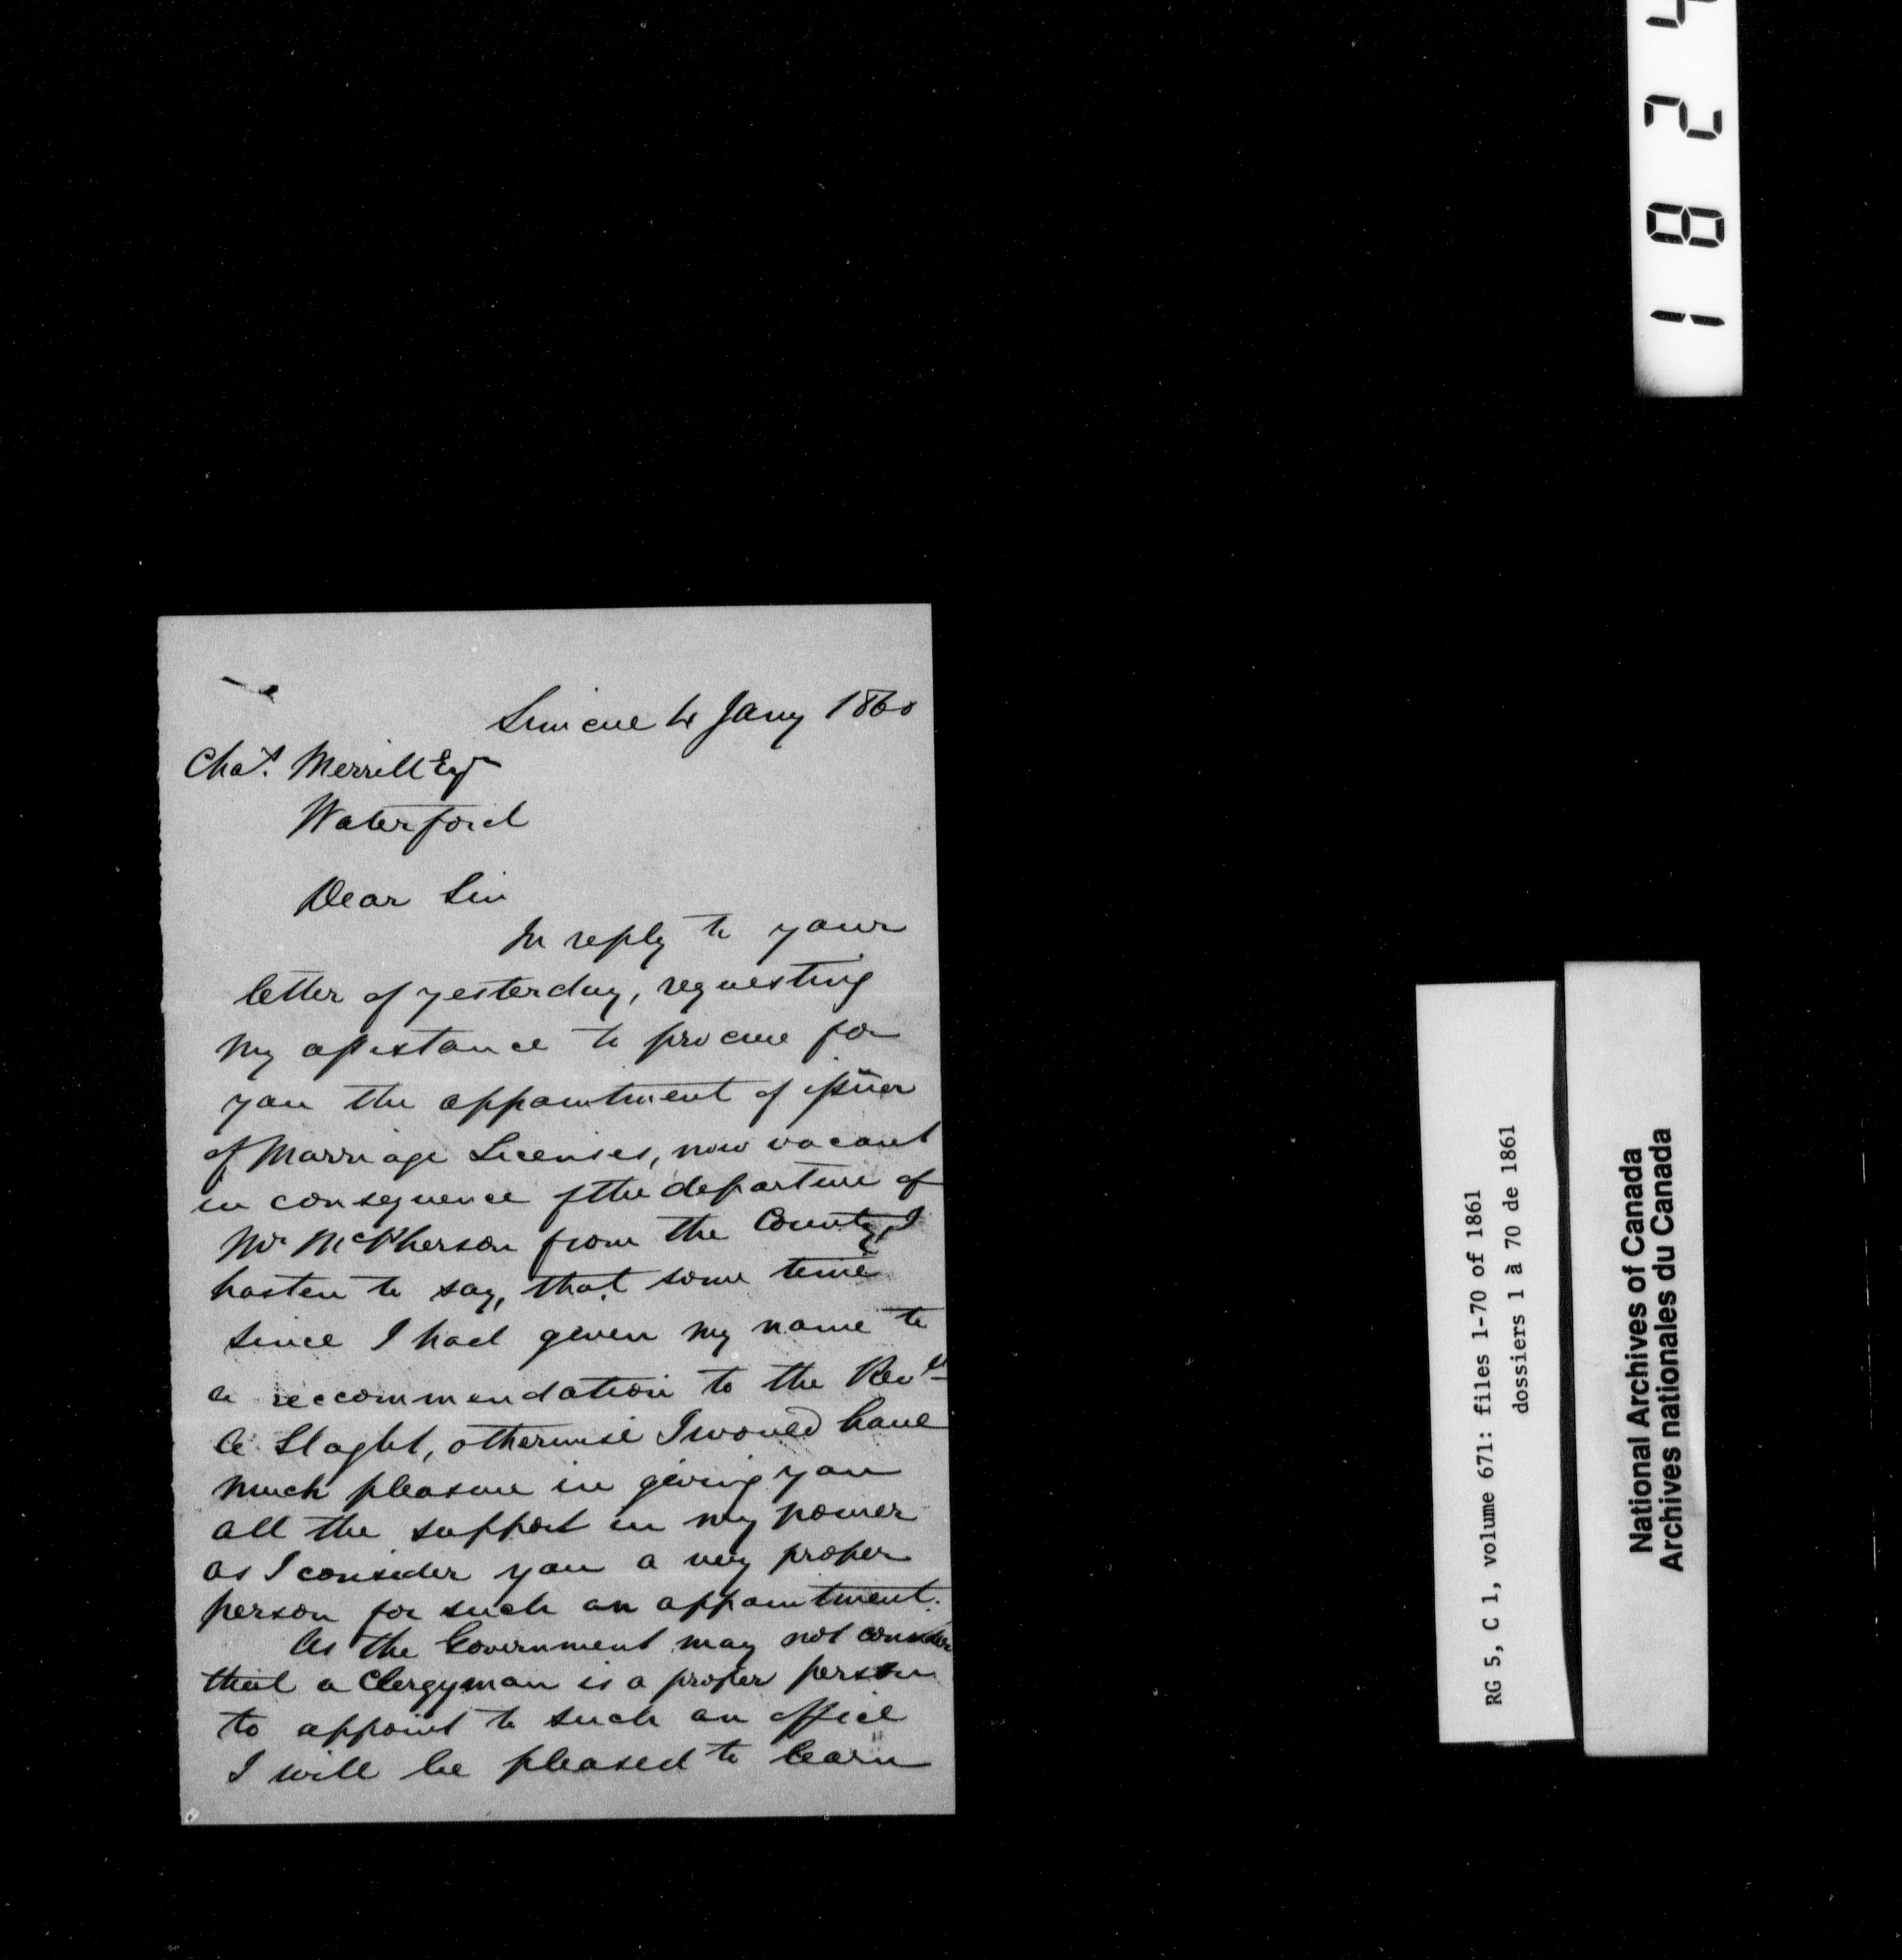 Simcoe 4 Jany 1860
Chas. Merrill Esqr
Waterford
Dear Sir
In reply to your
letter of yesterday, requesting
my assistance to procure for
you the appointment of issuer
of Marriage Licenses, now vacant
in consequence of the departure of
Mr McPherson from the County, I
hasten to say, that some time
since I had given my name to
a reccommendation to the Revd
A Slaght, otherwise I would have
much pleasure in giving you
all the support in my power
as I consider you a very proper
person for such an appointment.
As the Government may not consider
that a Clergyman is a proper person
to appoint to such an office
I will be pleased to learn
1824
RG 5, C 1, volume 671: files 1-70 of 1861
dossiers 1 à 70 de 1861
National Archives of Canada
Archives nationales du Canada